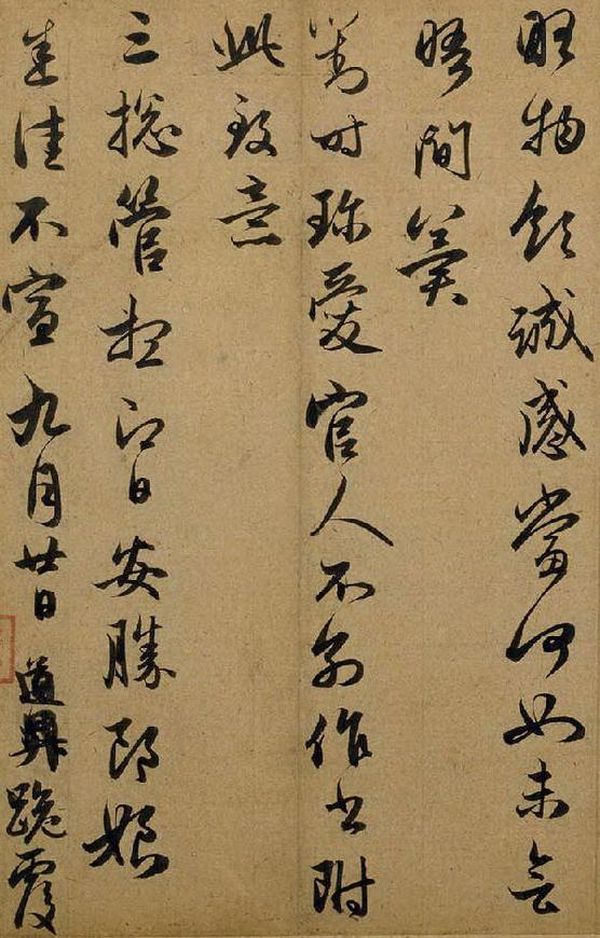 物領誠感當何如未會
晤間冀
對時珍愛官人不別作書附
此致意
三總管想即日安勝郎娘
悉佳不宣九月廿日道昇跪覆